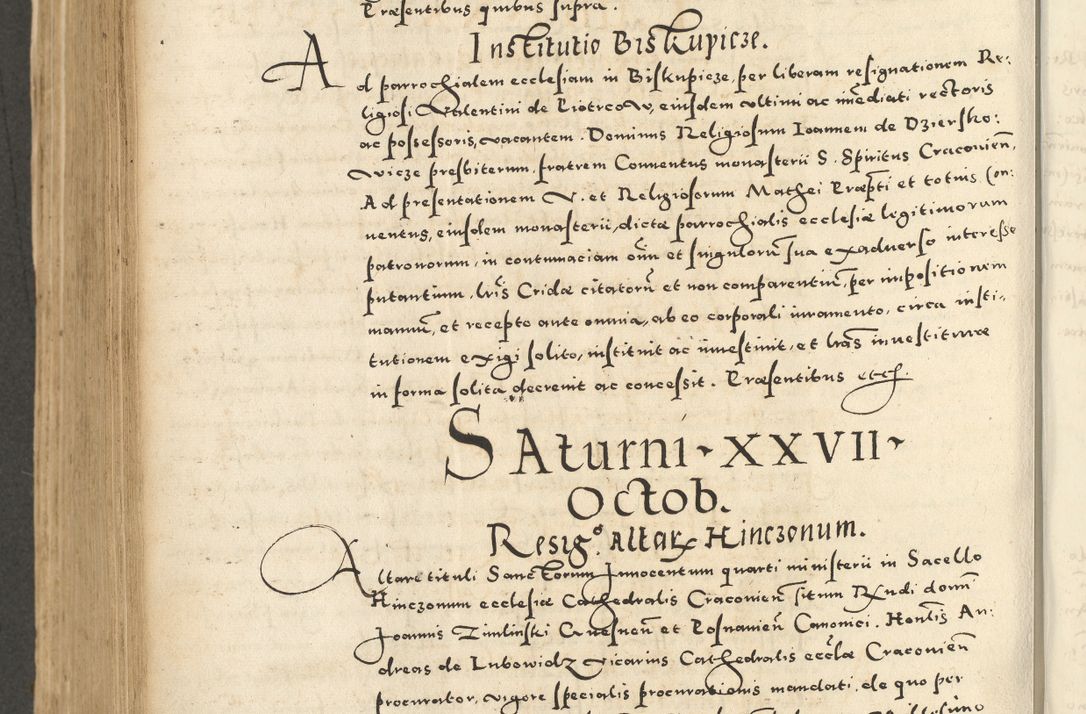 Præsentibus quibus supra.
Institutio Biskupicze.
Ad parrochialem ecclesiam in Biskupicze, per liberam resignationem Re:
ligiosi Valentini de Piotrcow, eiusdem ultimi ac imediati rectoris
ac possessoris, vacantem. Dominus Religiosum Ioannem de Dziersko:
vicze presbiterum, fratrem Conuentus monasterii S. Spiritus Cracovień,
Ad presentationem V. et Religiosorum Mathei Præpti et totius Con:
uentus, eiusdem monasterii, dictæ parrochialis ecclesiæ legitimorum
patronorum, in contumaciam oĩm et singulorum sua ex aduerso interesse
putantium, lris Cridæ citatorũ et non comparentiũ, per impositionem
manuũ, et recepto ante omnia, ab eo corporali iuramento, circa insti:
tutionem exigi solito, instituit ac inuestiuit, et lras inuestituræ
in forma solita decreuit ac concessit. Præsentibus etc.
SAturni XXVII
Octob.
Resigᵒ. Altaræ Hinczonum.
Altare tituli Sanctorum Innocentum quarti ministerii in Sacello
Hinczonum ecclesiæ Cathedralis Cracovień situm Rndi domĩ
Joannis Zimlinski Gnesneñ et Posnanień Canonici. Hontis An:
dreas de Lubowidz vicarius Cathedralis ecclæ Cracovień
procurator, vigore specialis procurationis mandati, de quo per